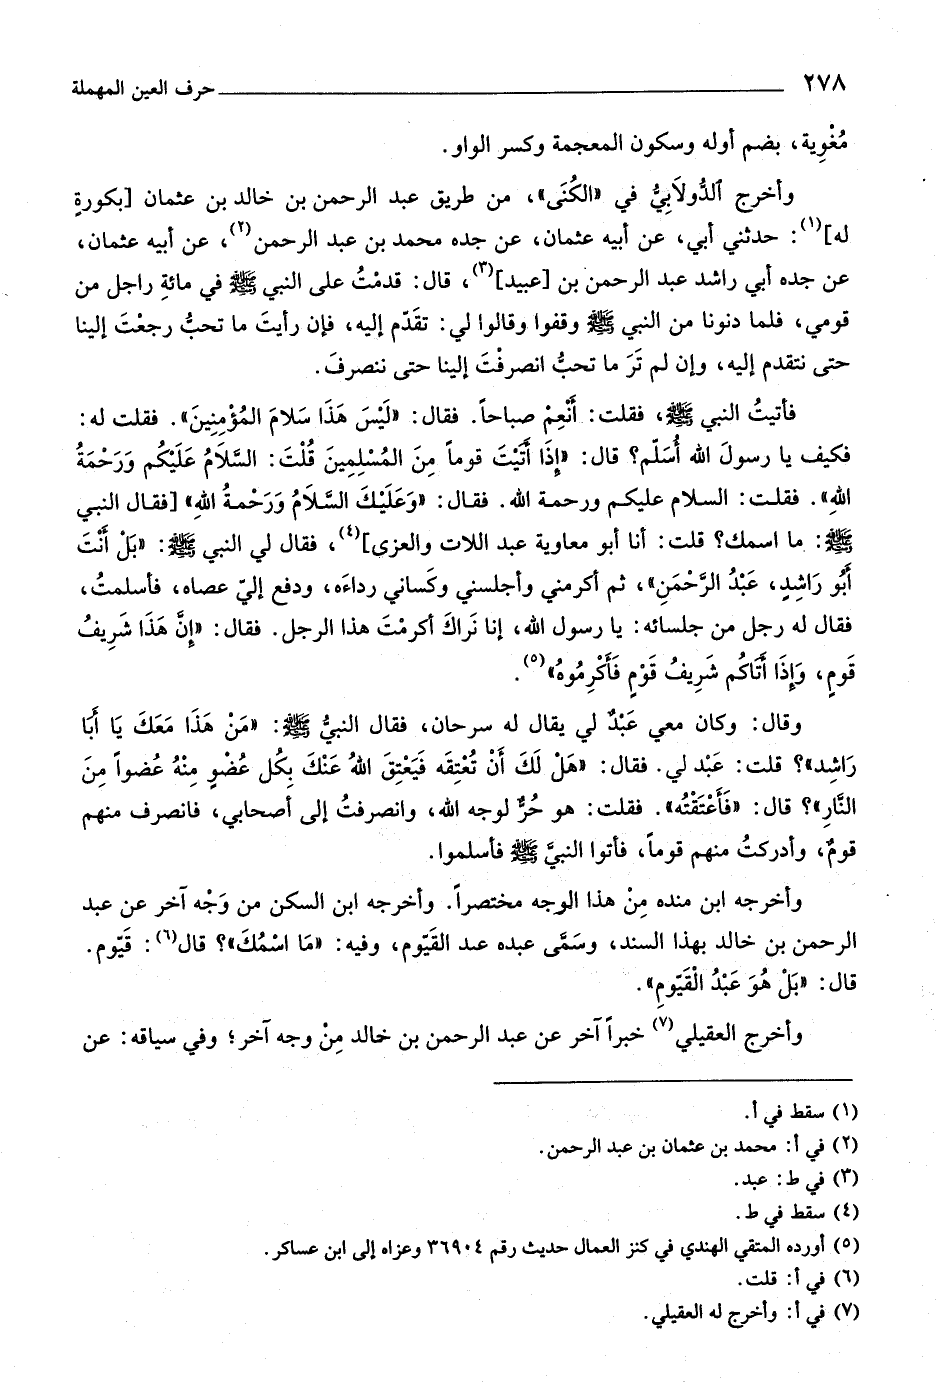 ٢٧٨ حرف العين المهملة
مُغْوِية، بضم أوله وسكون المعجمة وكسر الواو.
وأخرج الدُّولَابِيُّ في «الكُنَى»، من طريق عبد الرحمن بن خالد بن عثمان [بكورةٍ
له](١): حدثني أبي، عن أبيه عثمان، عن جده محمد بن عبد الرحمن(٢)، عن أبيه عثمان،
عن جده أبي راشد عبد الرحمن بن [عبيد](٣)، قال: قدمْتُ على النبي ﷺ في مائةِ راجل من
قومي، فلما دنونا من النبي ﷺ وقفوا وقالوا لي: تقدّم إليه، فإن رأيتَ ما تحبُّ رجعْتَ إلينا
حتى نتقدم إليه، وإن لم تَرَ ما تحبُّ انصرفْتَ إلينا حتى ننصرفَ.
فأتيتُ النبي ﷺ، فقلت: أَنْعِمْ صباحاً. فقال: «لَيْسَ هَذَا سَلامَ المُؤْمِنِينَ». فقلت له:
فكيف يا رسولَ الله أُسَلّم؟ قال: «إِذَا أَتَيْتَ قوماً مِنَ المُسْلِمِينَ قُلْتَ: السَّلامُ عَلَيْكُم وَرَحْمَةُ
اللهِ». فقلت: السلام عليكم ورحمة الله. فقال: «وَعَلَيْكَ السَّلَامُ وَرَحْمةُ اللهِ» [فقال النبي
ﷺ: ما اسمك؟ قلت: أنا أبو معاوية عبد اللات والعزى](٤)، فقال لي النبي ﷺ: «بَلْ أَنْتَ
أَبُو رَاشِدٍ، عَبْدُ الرَّحْمَنِ»، ثم أكرمني وأجلسني وكَساني رداءَه، ودفع إليّ عصاه، فأسلمتُ،
فقال له رجل من جلسائه: يا رسول الله، إنا نَراكَ أكرمْتَ هذا الرجل. فقال: «إِنَّ هَذَا شَرِيفُ
قَومٍ، وَإِذَا أَتَاكُم شَرِيفُ قَوْمٍ فَأَكْرِمُوهُ»(٥).
وقال: وكان معي عَبْدٌ لي يقال له سرحان، فقال النبيُّ ﷺ: «مَنْ هَذَا مَعَكَ يَا أَبَا
رَاشِد»؟ قلت: عَبْد لي. فقال: «هَلْ لَكَ أَنْ تُعْتِقَه فَيَعْتِقَ اللهُ عَنْكَ بِكُل عُضْوٍ مِنْهُ عُضواً مِنَ
النَّارِ»؟ قال: «فَأَعْتَقْتُه». فقلت: هو حُرٌّ لوجه الله، وانصرفتُ إلى أصحابي، فانصرف منهم
قومٌ، وأدركتُ منهم قوماً، فأتوا النبيَّ ﷺ فأسلموا.
وأخرجه ابن منده مِنْ هذا الوجه مختصراً. وأخرجه ابن السكن من وَجْه آخر عن عبد
الرحمن بن خالد بهذا السند، وسَمَّى عبده عبد القَيّوم، وفيه: «مَا اسْمُكَ»؟ قال(٦): قَيّوم.
قال: «بَلْ هُوَ عَبْدُ الْقَيّومِ».
وأخرج العقيلي(٧) خبراً آخر عن عبد الرحمن بن خالد مِنْ وجه آخر؛ وفي سياقه: عن
(١) سقط في أ.
(٢) في أ: محمد بن عثمان بن عبد الرحمن.
(٣) في ط: عبد.
(٤) سقط في ط.
(٥) أورده المتقي الهندي في كنز العمال حديث رقم ٣٦٩٠٤ وعزاه إلى ابن عساكر.
(٦) في أ: قلت.
(٧) في أ: وأخرج له العقيلي.